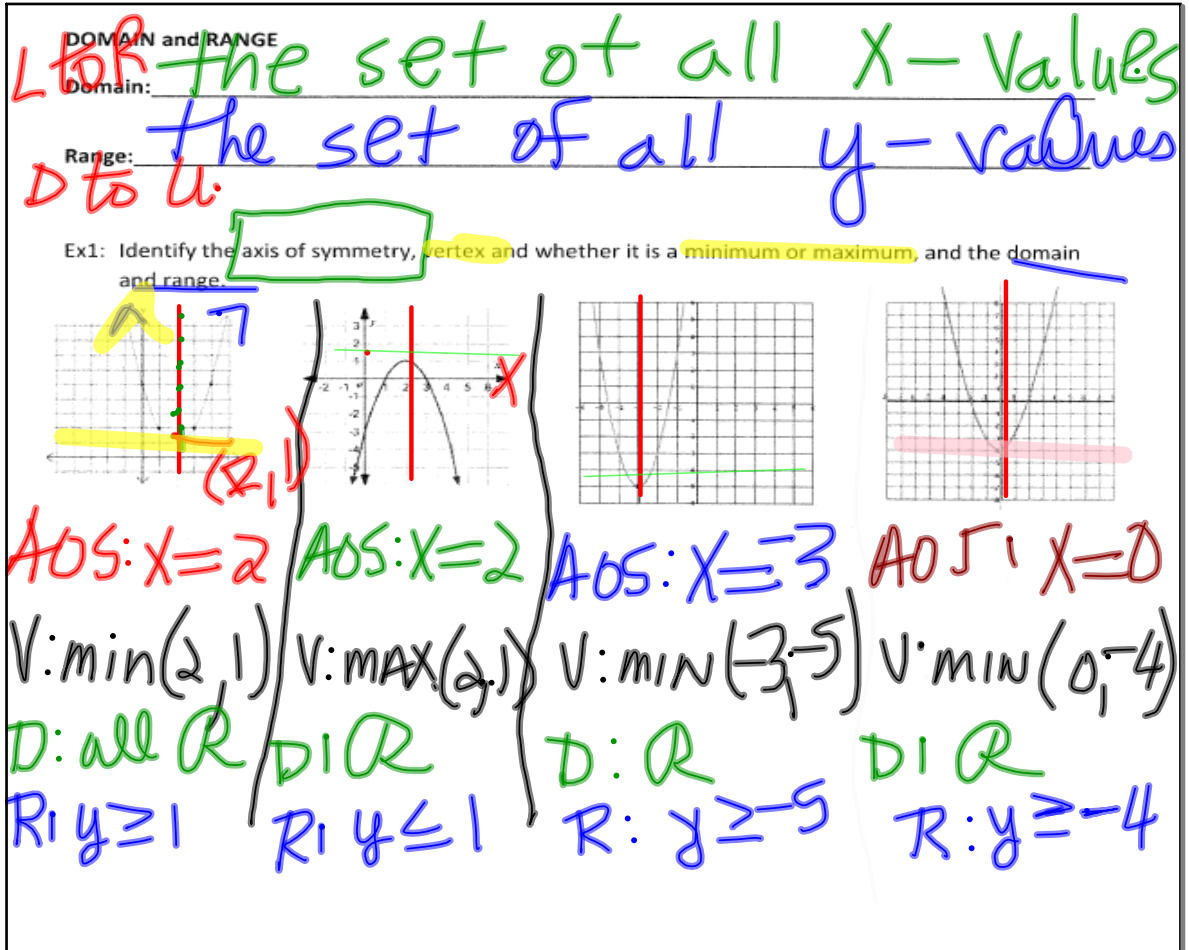 DOMAIN and RANGE
L to R the set of all X-values
Domain:
the set of all y-values
Range:
D to U.
Ex1: Identify the axis of symmetry, vertex and whether it is a minimum or maximum, and the domain
and range.
(2,1)
X
AOS: X=2
V: min(2,1)
D: all R
R: y≥1
AOS: X=2
V: MAX(2,1)
D: R
R: y≤1
AOS: X=-3
V: MIN(-3,-5)
D: R
R: y≥-5
AOS: X=0
V: MIN(0,-4)
D: R
R: y≥-4